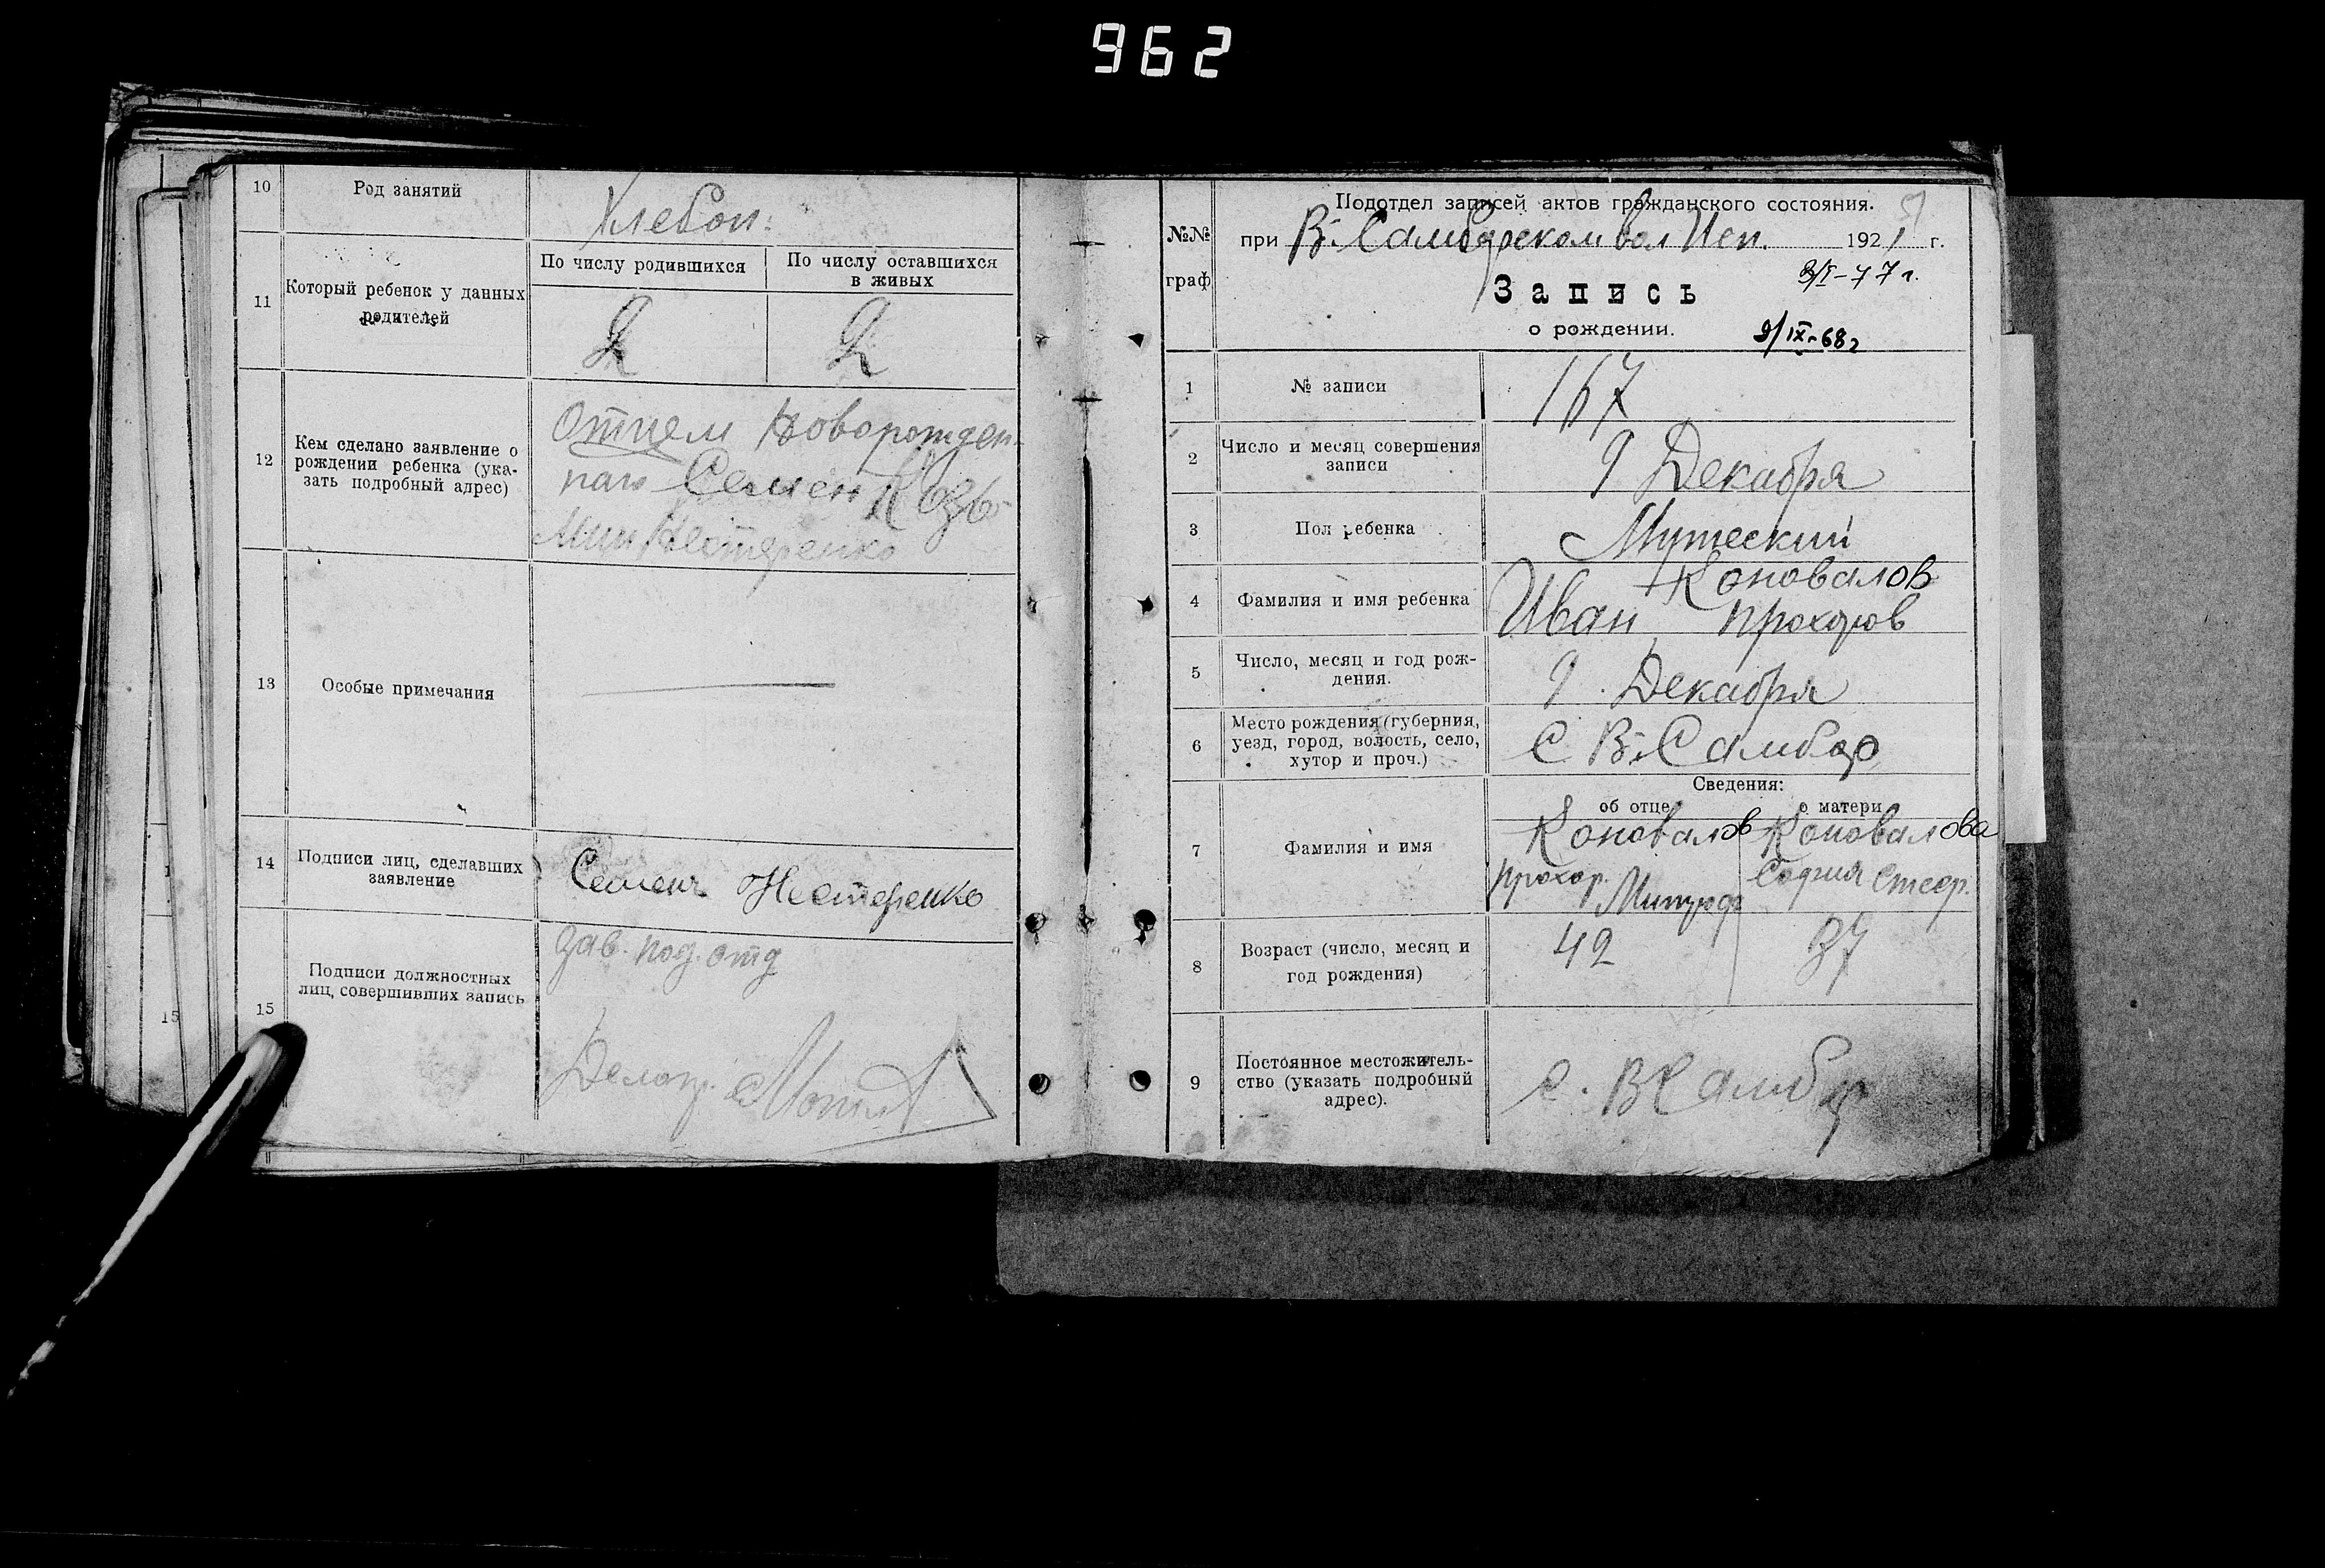 962
10 Род занятий Хлебоп:
11 Который ребенок у данных родителей
По числу родившихся
По числу оставшихся
в живых
2 2
12 Кем сделано заявление о
рождении ребенка (ука-
зать подробный адрес)
Отцем Новорожден-
наго Семен Козь
Мин Нестеренко
13 Особые примечания
14 Подписи лиц, сделавших
заявление
Семен Нестеренко
15 Подписи должностных
лиц, совершивших запись
Зав. под. отд
Делопр.
15
№№
граф
Подотдел записей актов гражданского состояния.
при В-Самбурском вол Исп. 1921 г.
Запись
о рождении.
3/I-77 г.
9/IX-68г
1 № записи 167
2 Число и месяц совершения
записи
9 Декабря
3 Пол ребенка Мужеский
4 Фамилия и имя ребенка
Коновалов
Иван Прохоров
5 Число, месяц и год рож-
дения.
9 Декабря
6 Место рождения (губерния,
уезд, город, волость, село,
хутор и проч.)
С В-Самбор
Сведения:
об отце о матери
7 Фамилия и имя
Коновалов Коновалова
Прохор. София
8 Возраст (число, месяц и
год рождения)
42 37
9 Постоянное местожитель-
ство (указать подробный
адрес).
С. В Самбур